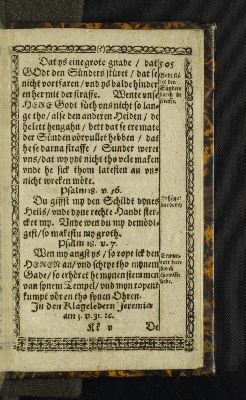 Dat ys eine grote gnade / dat
GOdt den Sünders stüret / dat se
nicht vortfaren / vnd ys balde hinder
en her mit der straffe. Wente vnse
HERE Godt süth vns nicht so lan-
ge tho / alse den anderen Heiden / de
he lett hengahn / bett dat se ere mate
der Sünden vörvullet hebben / dat
he se darna straffe / Sunder weret
vns / dat wy ydt nicht tho vele maken
vnde he sick thom latesten an vns
nicht wreken möte.
Psalm 18. v. 36.
Du giffst my den Schildt dynes
Heils / vnde dyne rechte Handt ster-
cket my. Vnde wen du my demödi-
gest / so makestu my groth.
Psalm 18. v. 7.
Wen my angst ys / so rope ick den
HEREN an / vnd schrye tho mynem
Gade / so erhöret he myne stemme
van synem Tempel / vnd myn ropent
kumpt vör en tho synen Ohren.
In den Klageledern Jeremiæ
am 3. v. 31. ec.
Kk v
De